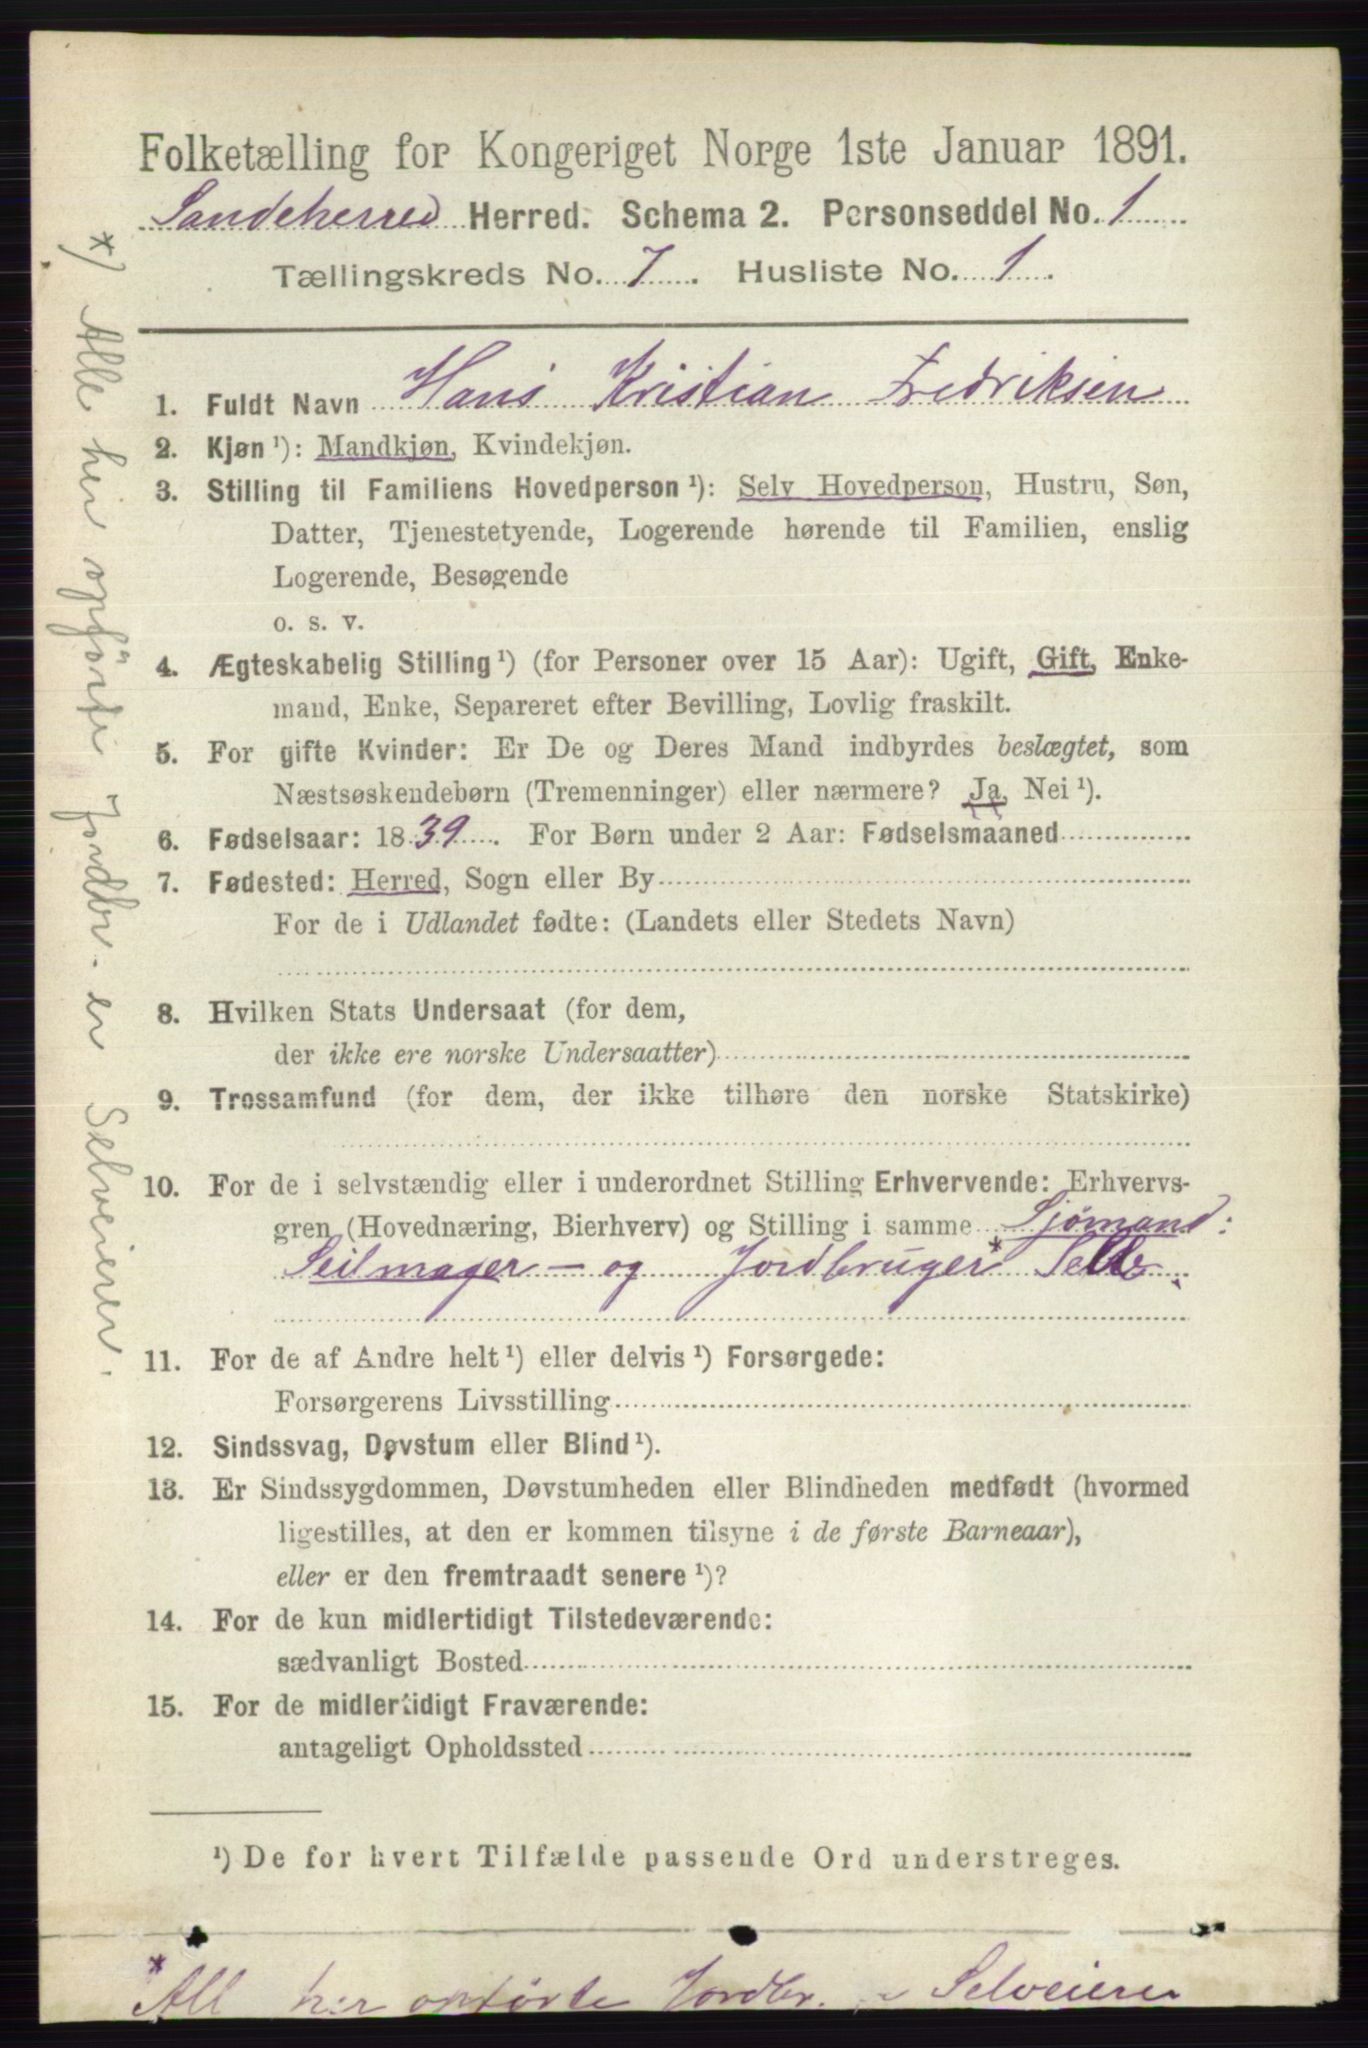 Folketælling for Kongeriget Norge 1ste Januar 1891.
Sandeherred Herred. Schema 2. Personseddel No. 1
Tællingskreds No. 7. Husliste No. 1.
1. Fuldt Navn Hans Kristian Fredriksen
2. Kjøn ¹): Mandkjøn, Kvindekjøn.
3. Stilling til Familiens Hovedperson ¹): Selv Hovedperson, Hustru, Søn,
Datter, Tjenestetyende, Logerende hørende til Familien, enslig
Logerende, Besøgende
o. s. v.
4. Ægteskabelig Stilling ¹) (for Personer over 15 Aar): Ugift, Gift, Enke-
mand, Enke, Separeret efter Bevilling, Lovlig fraskilt.
5. For gifte Kvinder: Er De og Deres Mand indbyrdes beslægtet, som
Næstsøskendebørn (Tremenninger) eller nærmere? Ja, Nei ¹).
6. Fødselsaar: 1839. For Børn under 2 Aar: Fødselsmaaned
7. Fødested: Herred, Sogn eller By
For de i Udlandet fødte: (Landets eller Stedets Navn)
8. Hvilken Stats Undersaat (for dem,
der ikke ere norske Undersaatter)
9. Trossamfund (for dem, der ikke tilhøre den norske Statskirke)
10. For de i selvstændig eller i underordnet Stilling Erhvervende: Erhvervs-
gren (Hovednæring, Bierhverv) og Stilling i samme Sjømand:
Seilmager – og Jordbruger*
11. For de af Andre helt ¹) eller delvis ¹) Forsørgede:
Forsørgerens Livsstilling
12. Sindssvag, Døvstum eller Blind ¹).
13. Er Sindssygdommen, Døvstumheden eller Blindheden medfødt (hvormed
ligestilles, at den er kommen tilsyne i de første Barneaar),
eller er den fremtraadt senere ¹)?
14. For de kun midlertidigt Tilstedeværende:
sædvanligt Bosted
15. For de midlertidigt Fraværende:
antageligt Opholdssted
¹) De for hvert Tilfælde passende Ord understreges.
* All her opførte Jordbr. Selveiere
*) Alle her opførte Jordbr. er Selveiere.